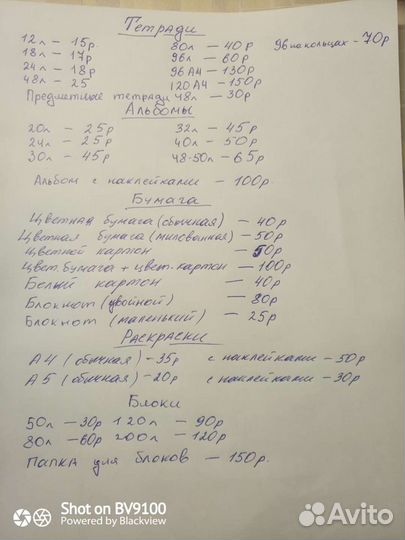 Тетради
12л - 15р 80л - 40р 96 на кольцах - 70р
18л - 17р 96л - 60р
24л - 18р 96 А4 - 130р
48л - 25 120 А4 - 150р
Предметные тетради 48л - 30р
Альбомы
20л - 25р 32л - 45р
24л - 25р 40л - 50р
30л - 45р 48-50л - 65р
Альбом с наклейками - 100р.
Бумага
Цветная бумага (обычная) - 40р
Цветная бумага (мелованная) - 50р
Цветной картон - 50р
Цвет. бумага + цвет. картон - 100р
Белый картон - 40р
Блокнот (двойной) - 80р
Блокнот (маленький) - 25р
Раскраски
А4 (обычная) - 35р с наклейками - 50р
А5 (обычная) - 20р с наклейками - 30р
Блоки
50л - 30р 120л - 90р
80л - 60р 200л - 120р
Папка для блоков - 150р.
Shot on BV9100
Powered by Blackview
Avito